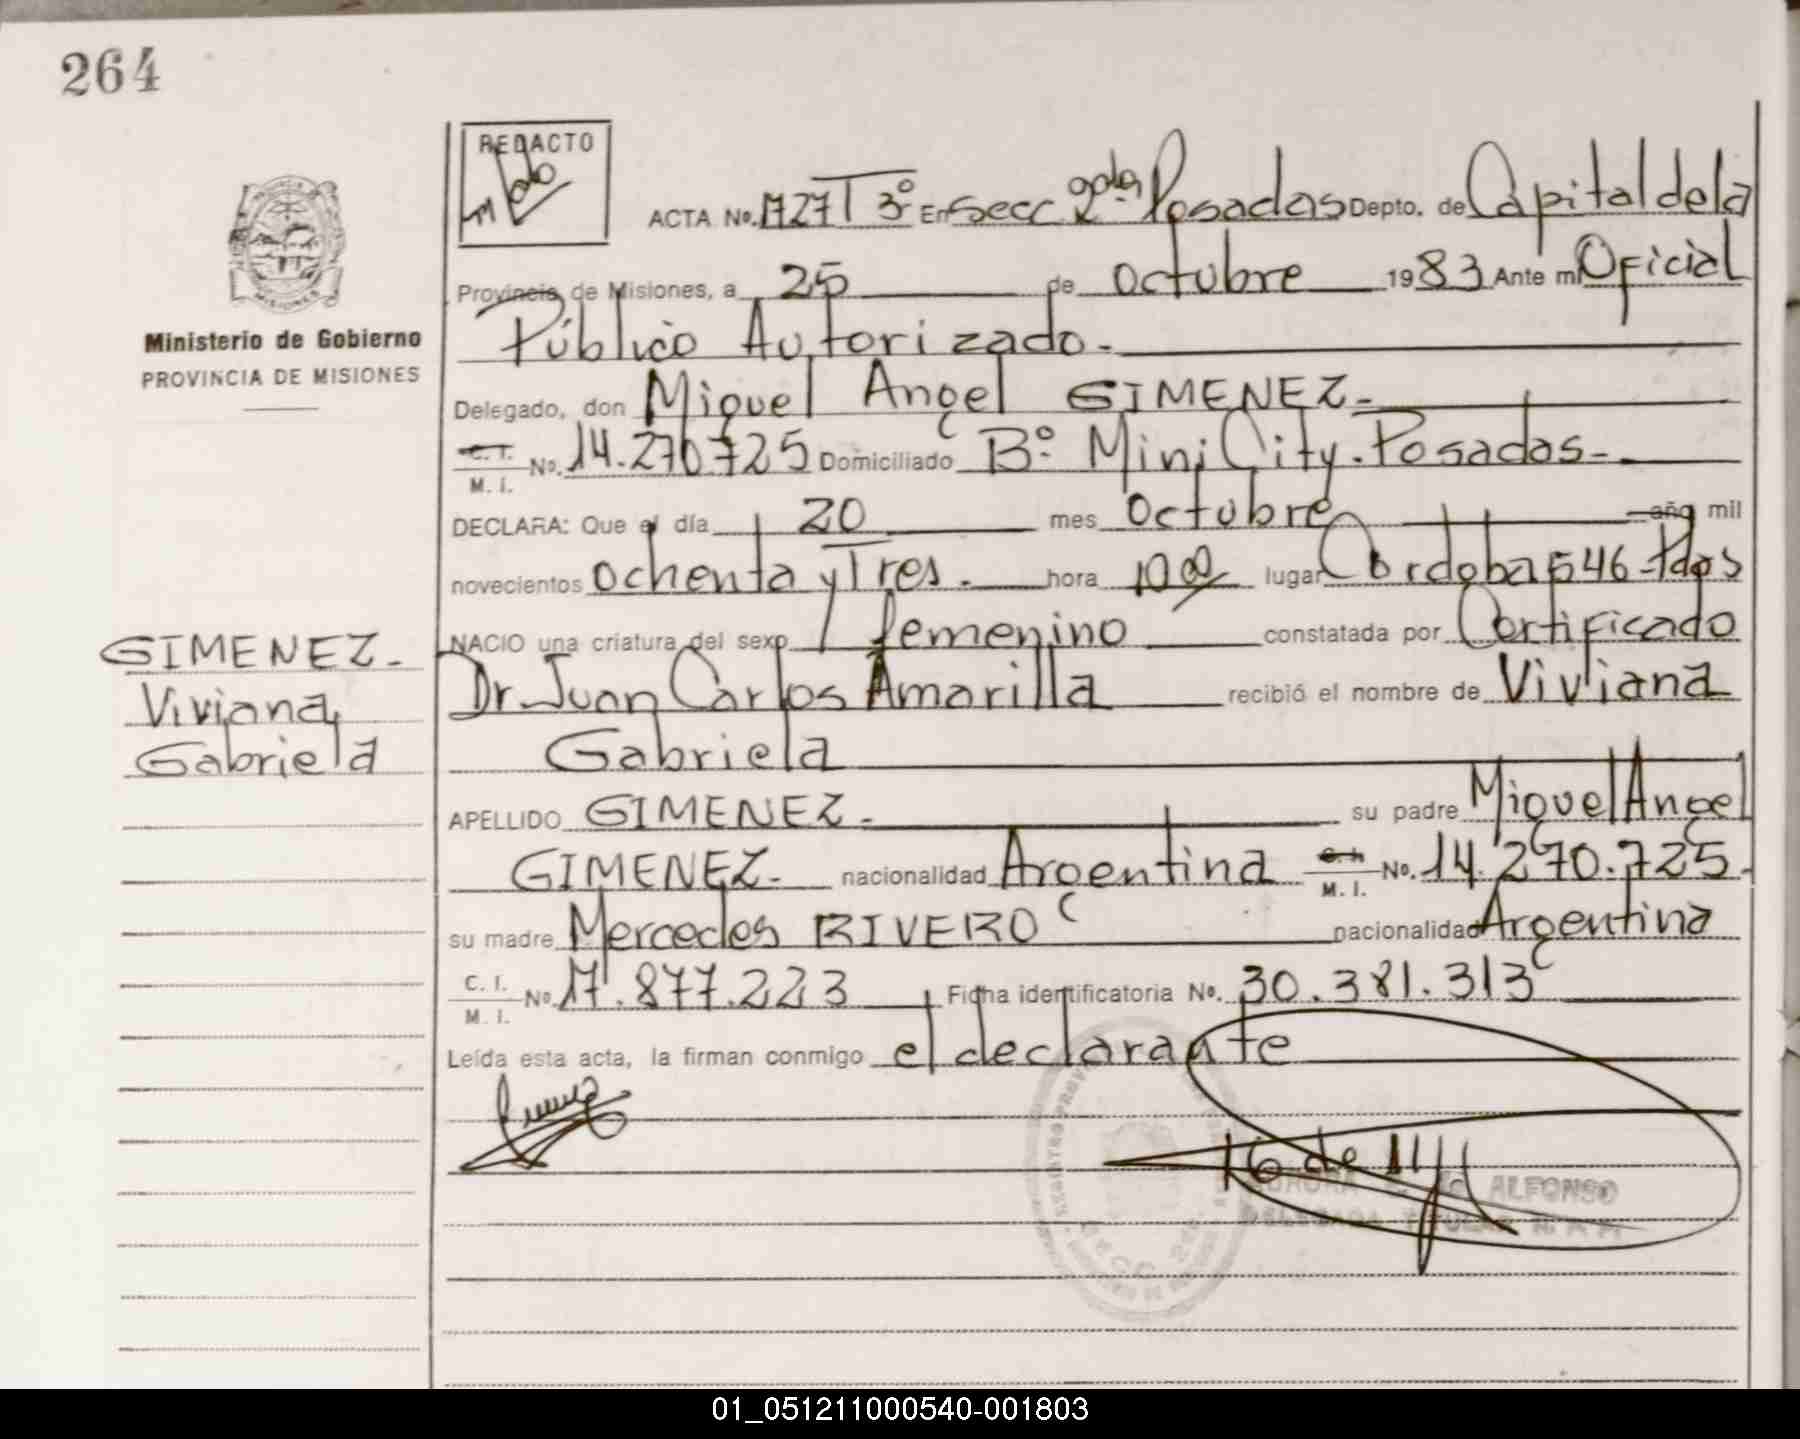 264
REDACTO
ACTA No. 1727 T 3º En Secc 2da Posadas Depto. de Capital de la
Provincia de Misiones, a 25 de Octubre 1983 Ante mi Oficial
Público Autorizado.-
Ministerio de Gobierno
PROVINCIA DE MISIONES
Delegado, don Miguel Angel GIMENEZ.-
C. I.
M. I. No. 14.270.725 Domiciliado Bº: Mini City. Posadas.-
DECLARA: Que el día 20 mes Octubre año mil
novecientos ochenta y Tres. hora 10 00 lugar Cordoba 546 - Pdas
NACIO una criatura del sexo femenino constatada por Certificado
Dr. Juan Carlos Amarilla recibió el nombre de Viviana
Gabriela
GIMENEZ.-
Viviana
Gabriela
APELLIDO GIMENEZ.- su padre Miguel Angel
GIMENEZ.- nacionalidad Argentina M. I. No. 14.270.725.-
su madre Mercedes RIVERO nacionalidad Argentina
C. I.
M. I. No. 17.877.223 Ficha identificatoria No. 30.381.313
Leída esta acta, la firman conmigo el declarante
ALFONSO
DELEGADA TITULAR
01_051211000540-001803